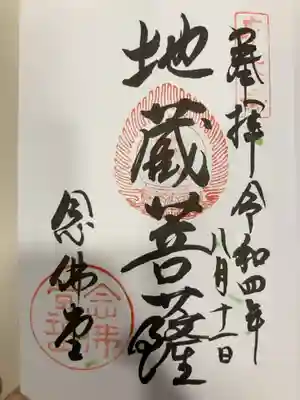 奉拝 令和四年
八月十一日
地蔵菩薩
念佛堂